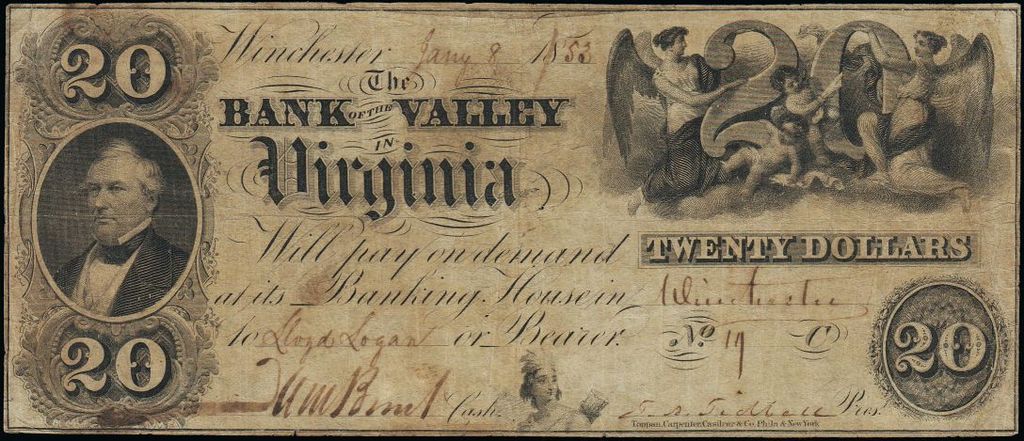 20
Winchester Jany 8 1853
The
BANK OF THE VALLEY
IN
Virginia
20
Will pay on demand TWENTY DOLLARS
at its Banking House in Winchester
to Lloyd Logan or Bearer. No 19 C
20
20
Cash. T. A. Tidball Pres.
Toppan, Carpenter, Casilear & Co. Phila & New York